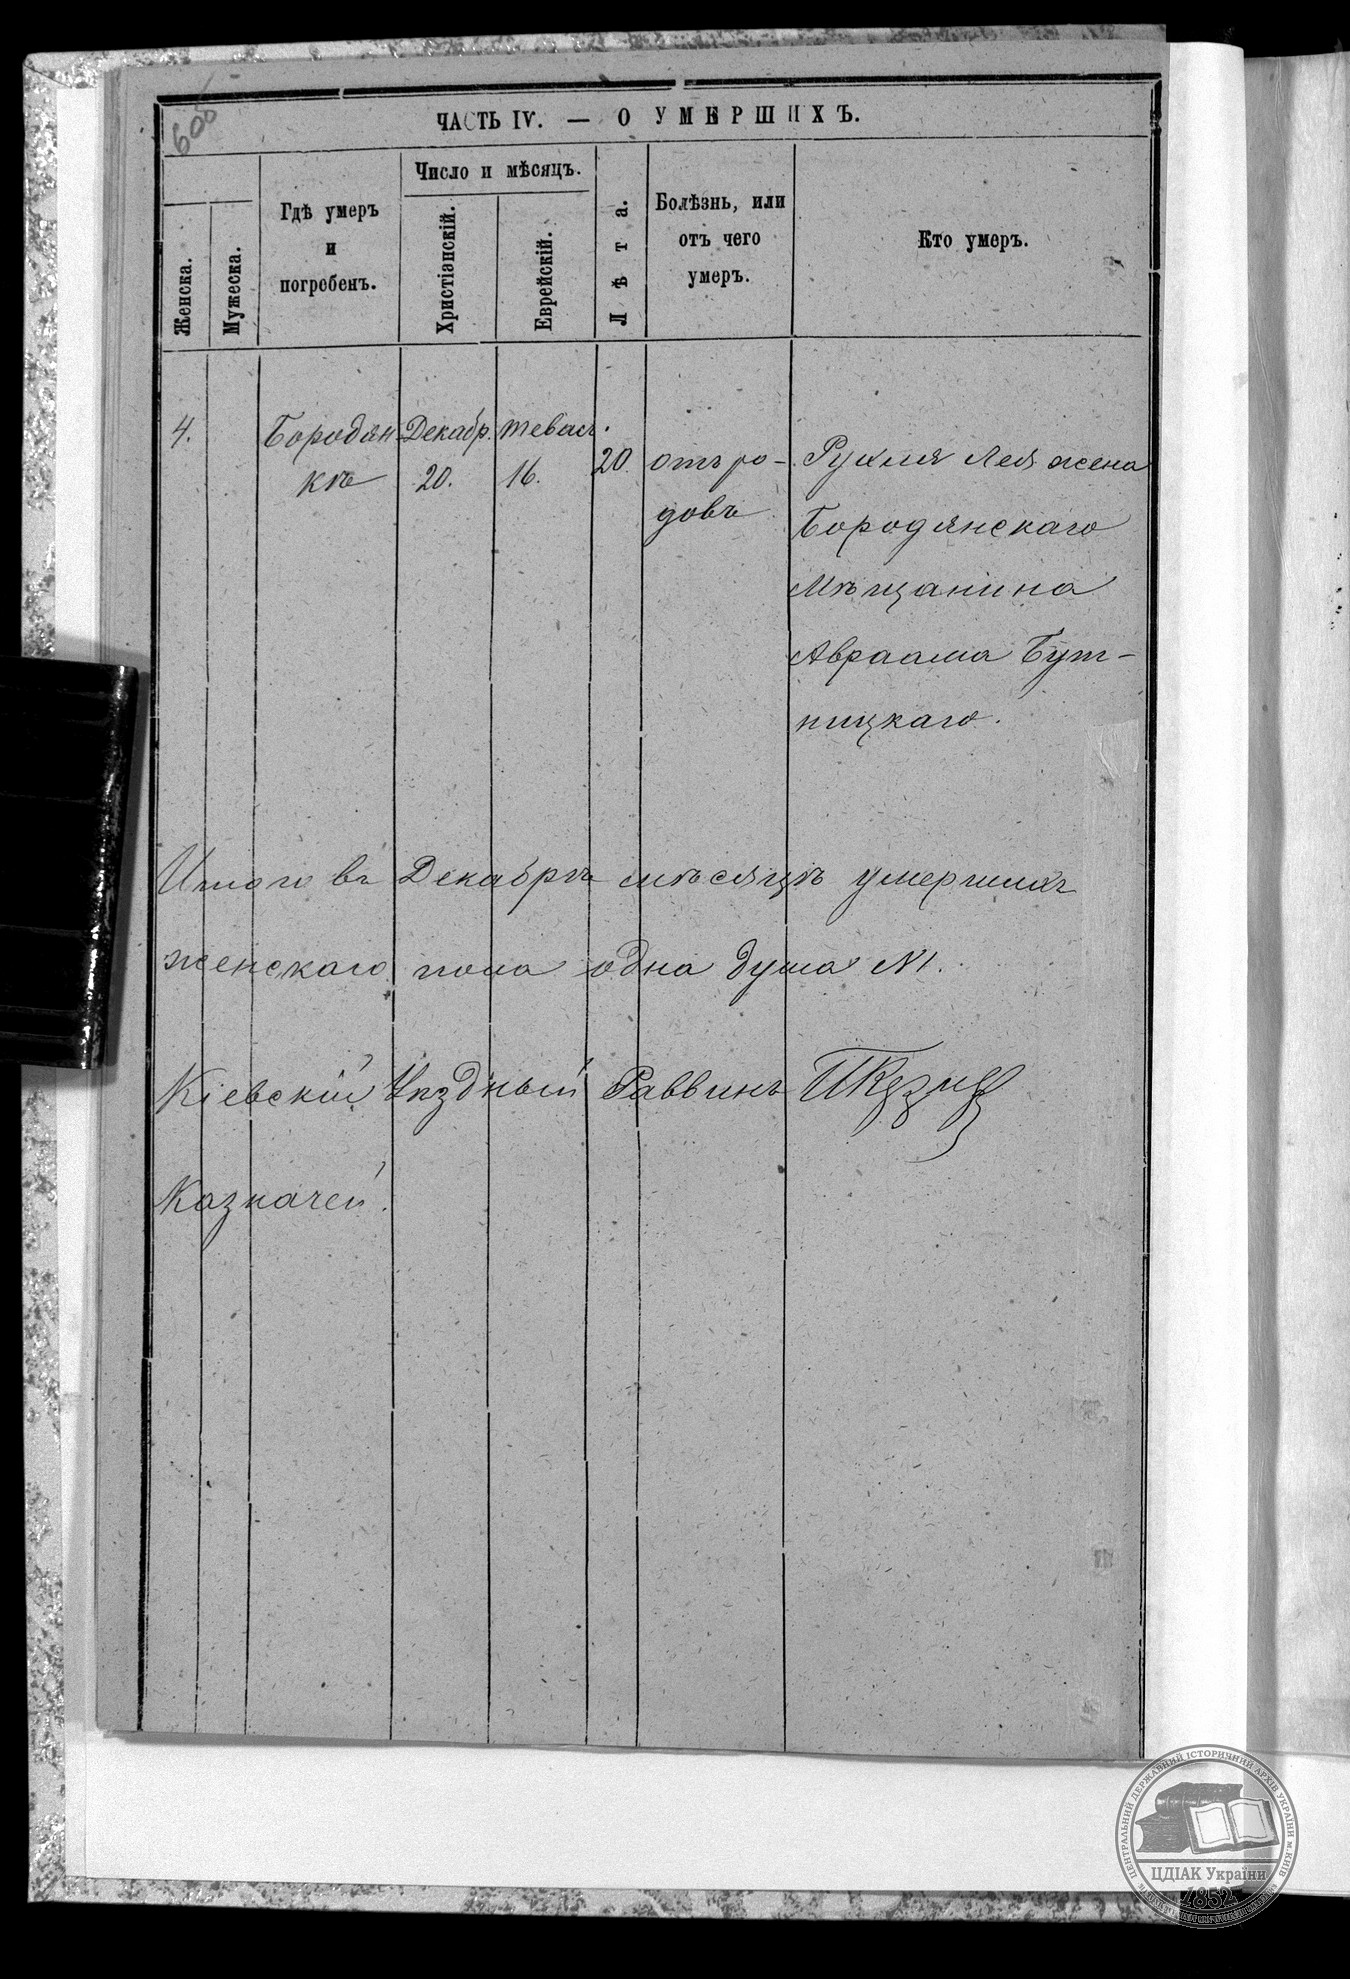 ЧАСТЬ IV. — О УМЕРШИХЪ.
Женска.
Мужеска.
Гдѣ умеръ
и
погребенъ.
Число и мѣсяцъ.
Христіанскій.
Еврейскій.
Лѣта.
Болѣзнь, или
отъ чего
умеръ.
Кто умеръ.
4.
Бородян
кѣ
Декабр.
20.
16.
20.
отъ ро-
довъ
Рухля Лея жена
Бородянскаго
Мѣщанина
Авраама Бут-
ницкаго.
Итого въ Декабрѣ мѣсяцѣ умершихъ
женскаго пола одна душа №1.
Кіевскій Уѣздный Раввинъ
Казначей.
ЦЕНТРАЛЬНИЙ ДЕРЖАВНИЙ ІСТОРИЧНИЙ АРХІВ УКРАЇНИ М. КИЇВ
ЦДІАК України
1852